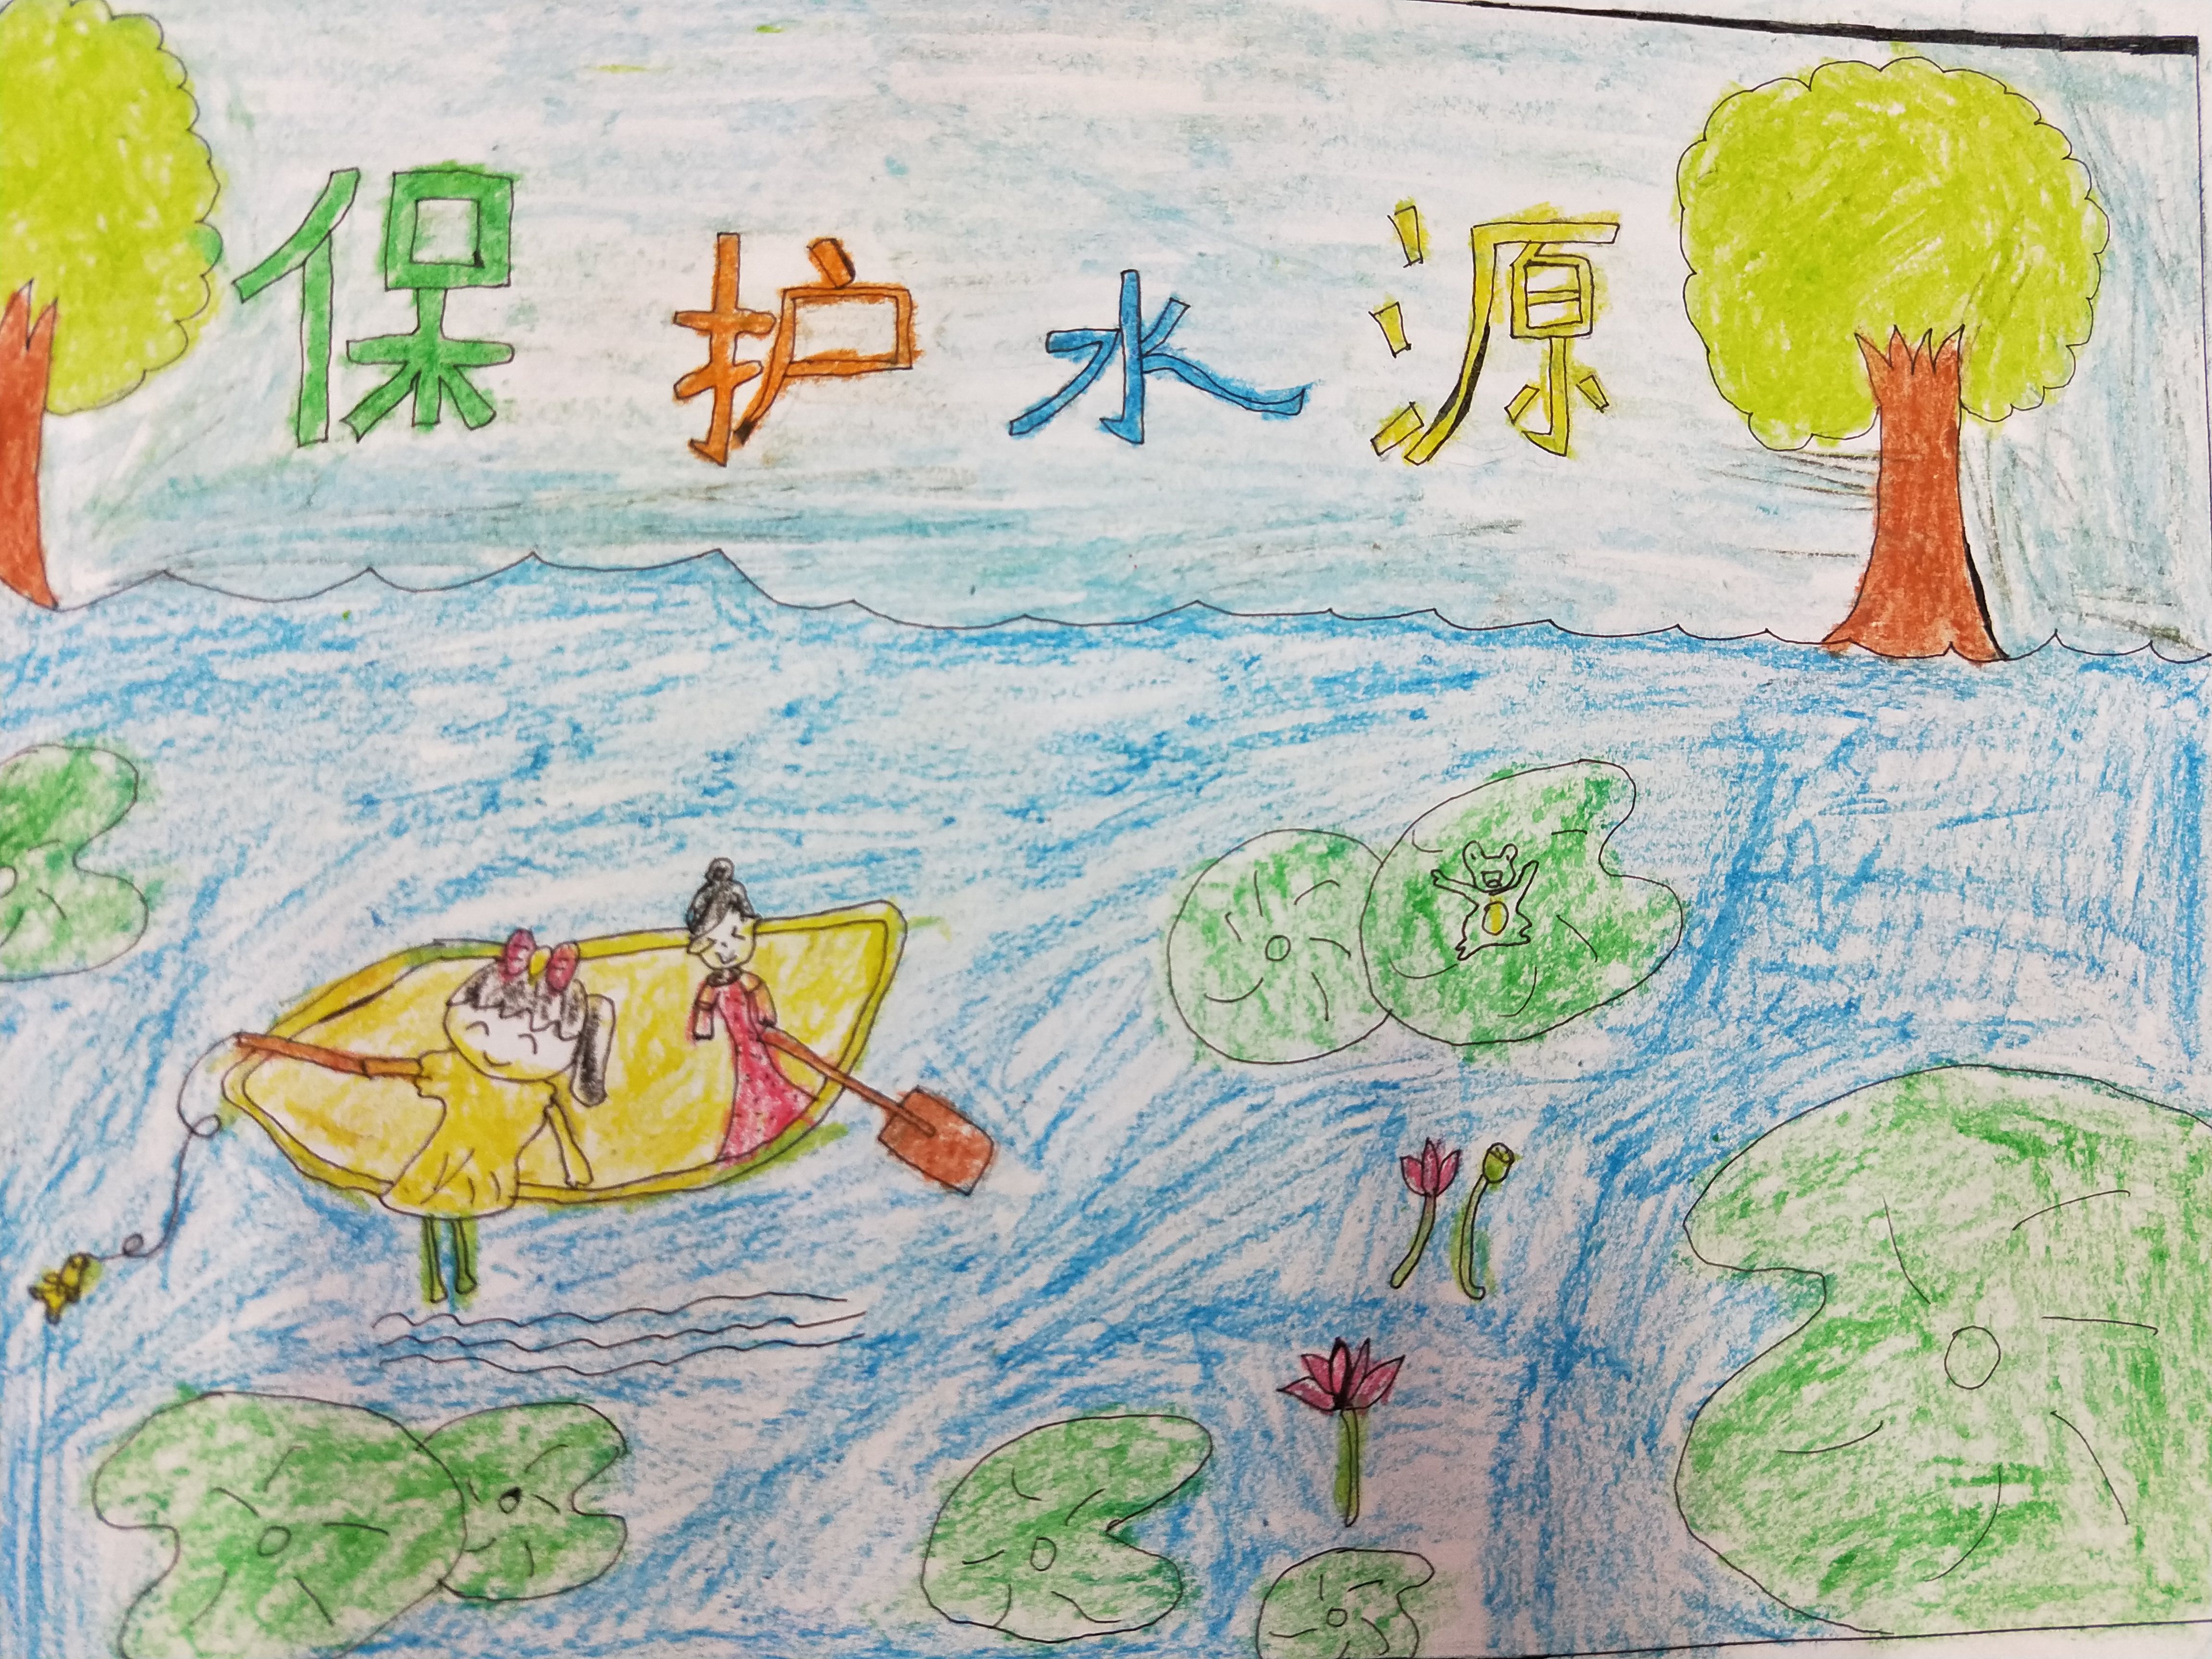 保护水源